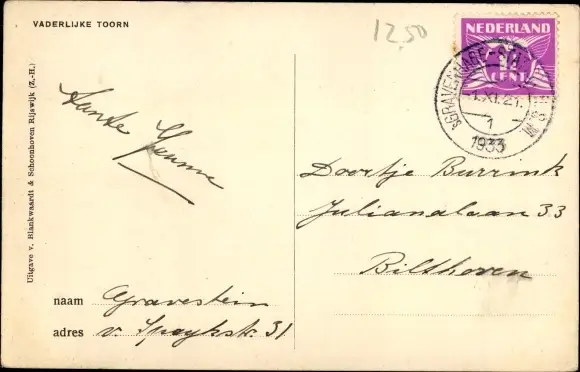 VADERLIJKE TOORN
12,50
NEDERLAND
1½
CENT
'sGRAVENHAGE-STA
1.XI.21
1
1933
Tante
Uitgave v. Blankwaardt & Schoonhoven Rijswijk (Z.-H.)
Doortje Burrink
Julianalaan 33
Bilthoven
naam Gravestein
adres v. Speykstr. 31